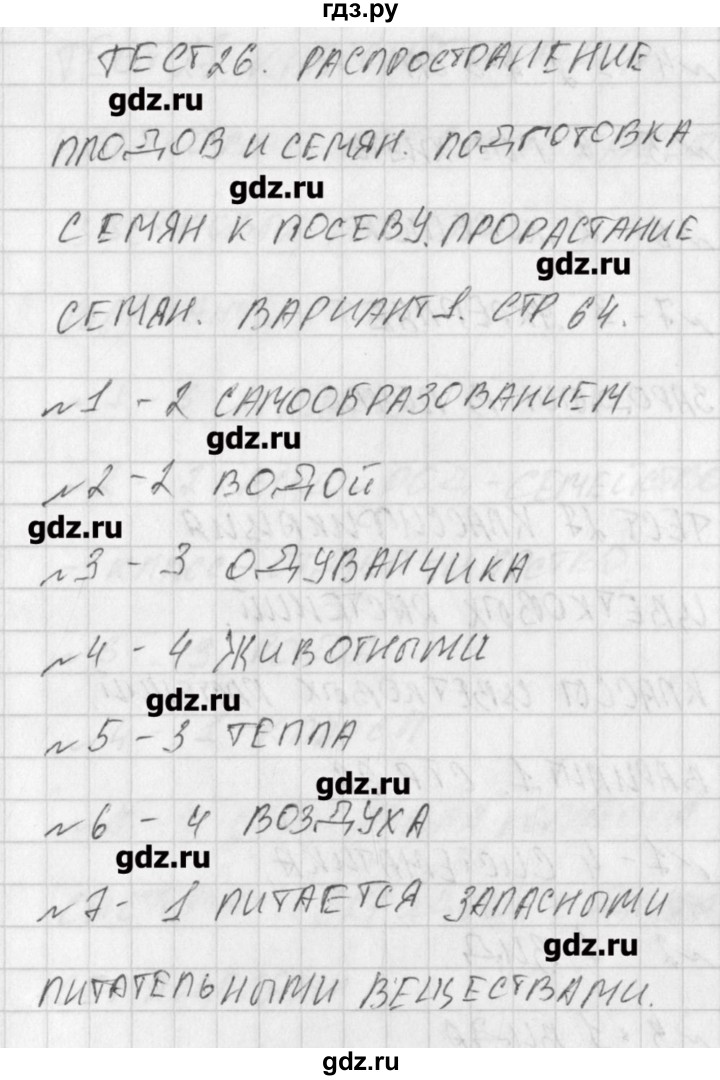 гдз.ру
ТЕСТ 26. РАСПРОСТРАНЕНИЕ
gdz.ru
ПЛОДОВ И СЕМЯН. ПОДГОТОВКА
gdz.ru
СЕМЯН К ПОСЕВУ. ПРОРАСТАНИЕ
gdz.ru
СЕМЯН. ВАРИАНТ 1. СТР 64.
№1 - 2 САМООБРАЗОВАНИЕМ
gdz.ru
№2 - 2 ВОДОЙ
gdz.ru
№3 - 3 ОДУВАНЧИКА
№4 - 4 ЖИВОТНЫМИ
gdz.ru
№5 - 3 ТЕПЛА
gdz.ru
№6 - 4 ВОЗДУХА
gdz.ru
№7 - 1 ПИТАЕТСЯ ЗАПАСНЫМИ
gdz.ru
ПИТАТЕЛЬНЫМИ ВЕЩЕСТВАМИ.
gdz.ru